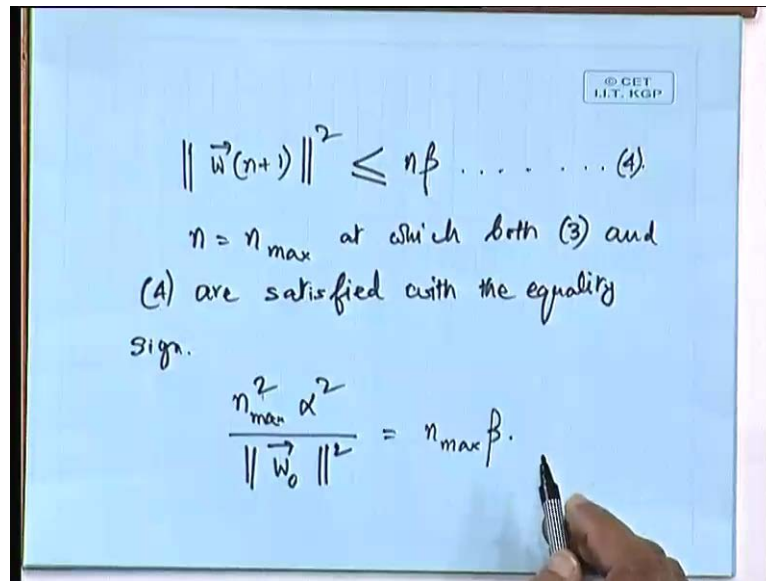 © CET
I.I.T. KGP
‖ w⃗(n+1) ‖² ≤ nβ . . . . . . . . (4).
n = n_max at which both (3) and
(4) are satisfied with the equality
sign.
n²_max α² / ‖ w⃗₀ ‖² = n_max β.